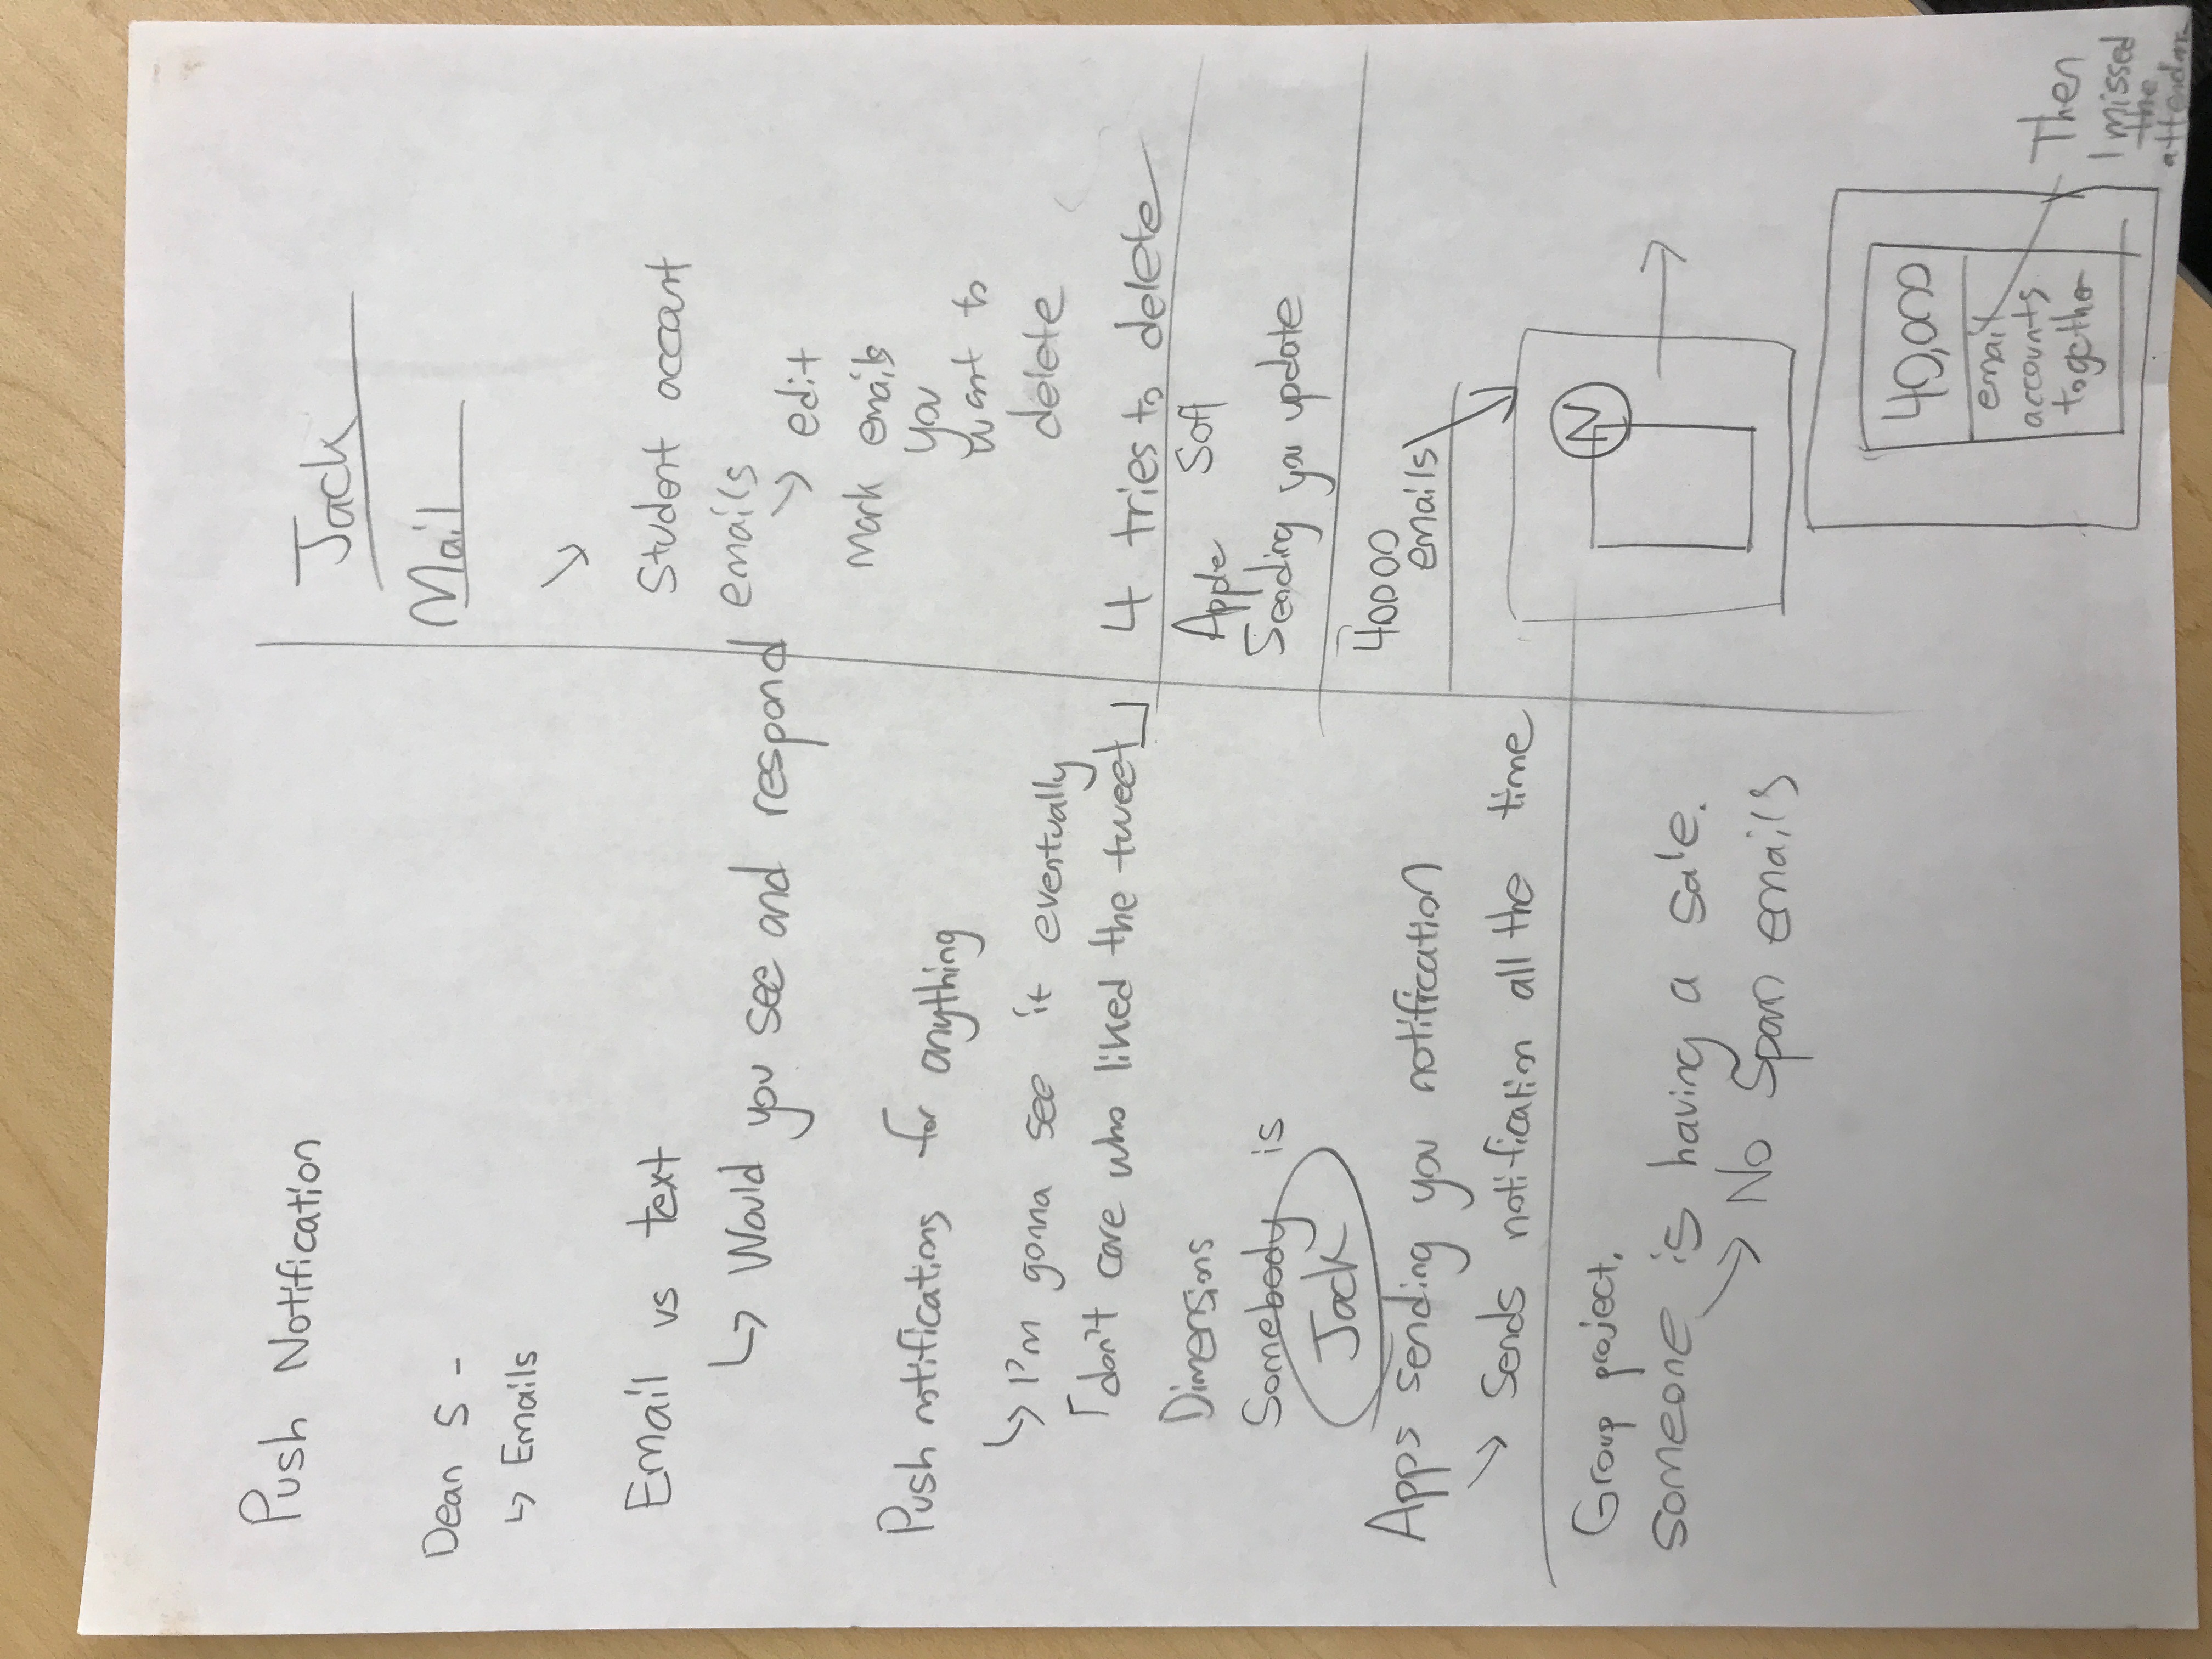 Push Notification
Dean S -
↳ Emails
Email vs text
↳ Would you see and respond
Push notifications for anything
↳ I'm gonna see it eventually
「don't care who liked the tweet」
Dimensions
Somebody is
Jack
Apps sending you notification
↘ Sends notification all the time
Group project.
someone is having a sale.
→ No Spam emails
Jack
Mail
↘
Student account
emails
↘ edit
Mark emails
you
want to
delete
4 tries to delete
Apple Soft
Sending you update
40000
emails
N
40,000
email
accounts
together
Then
I missed
the